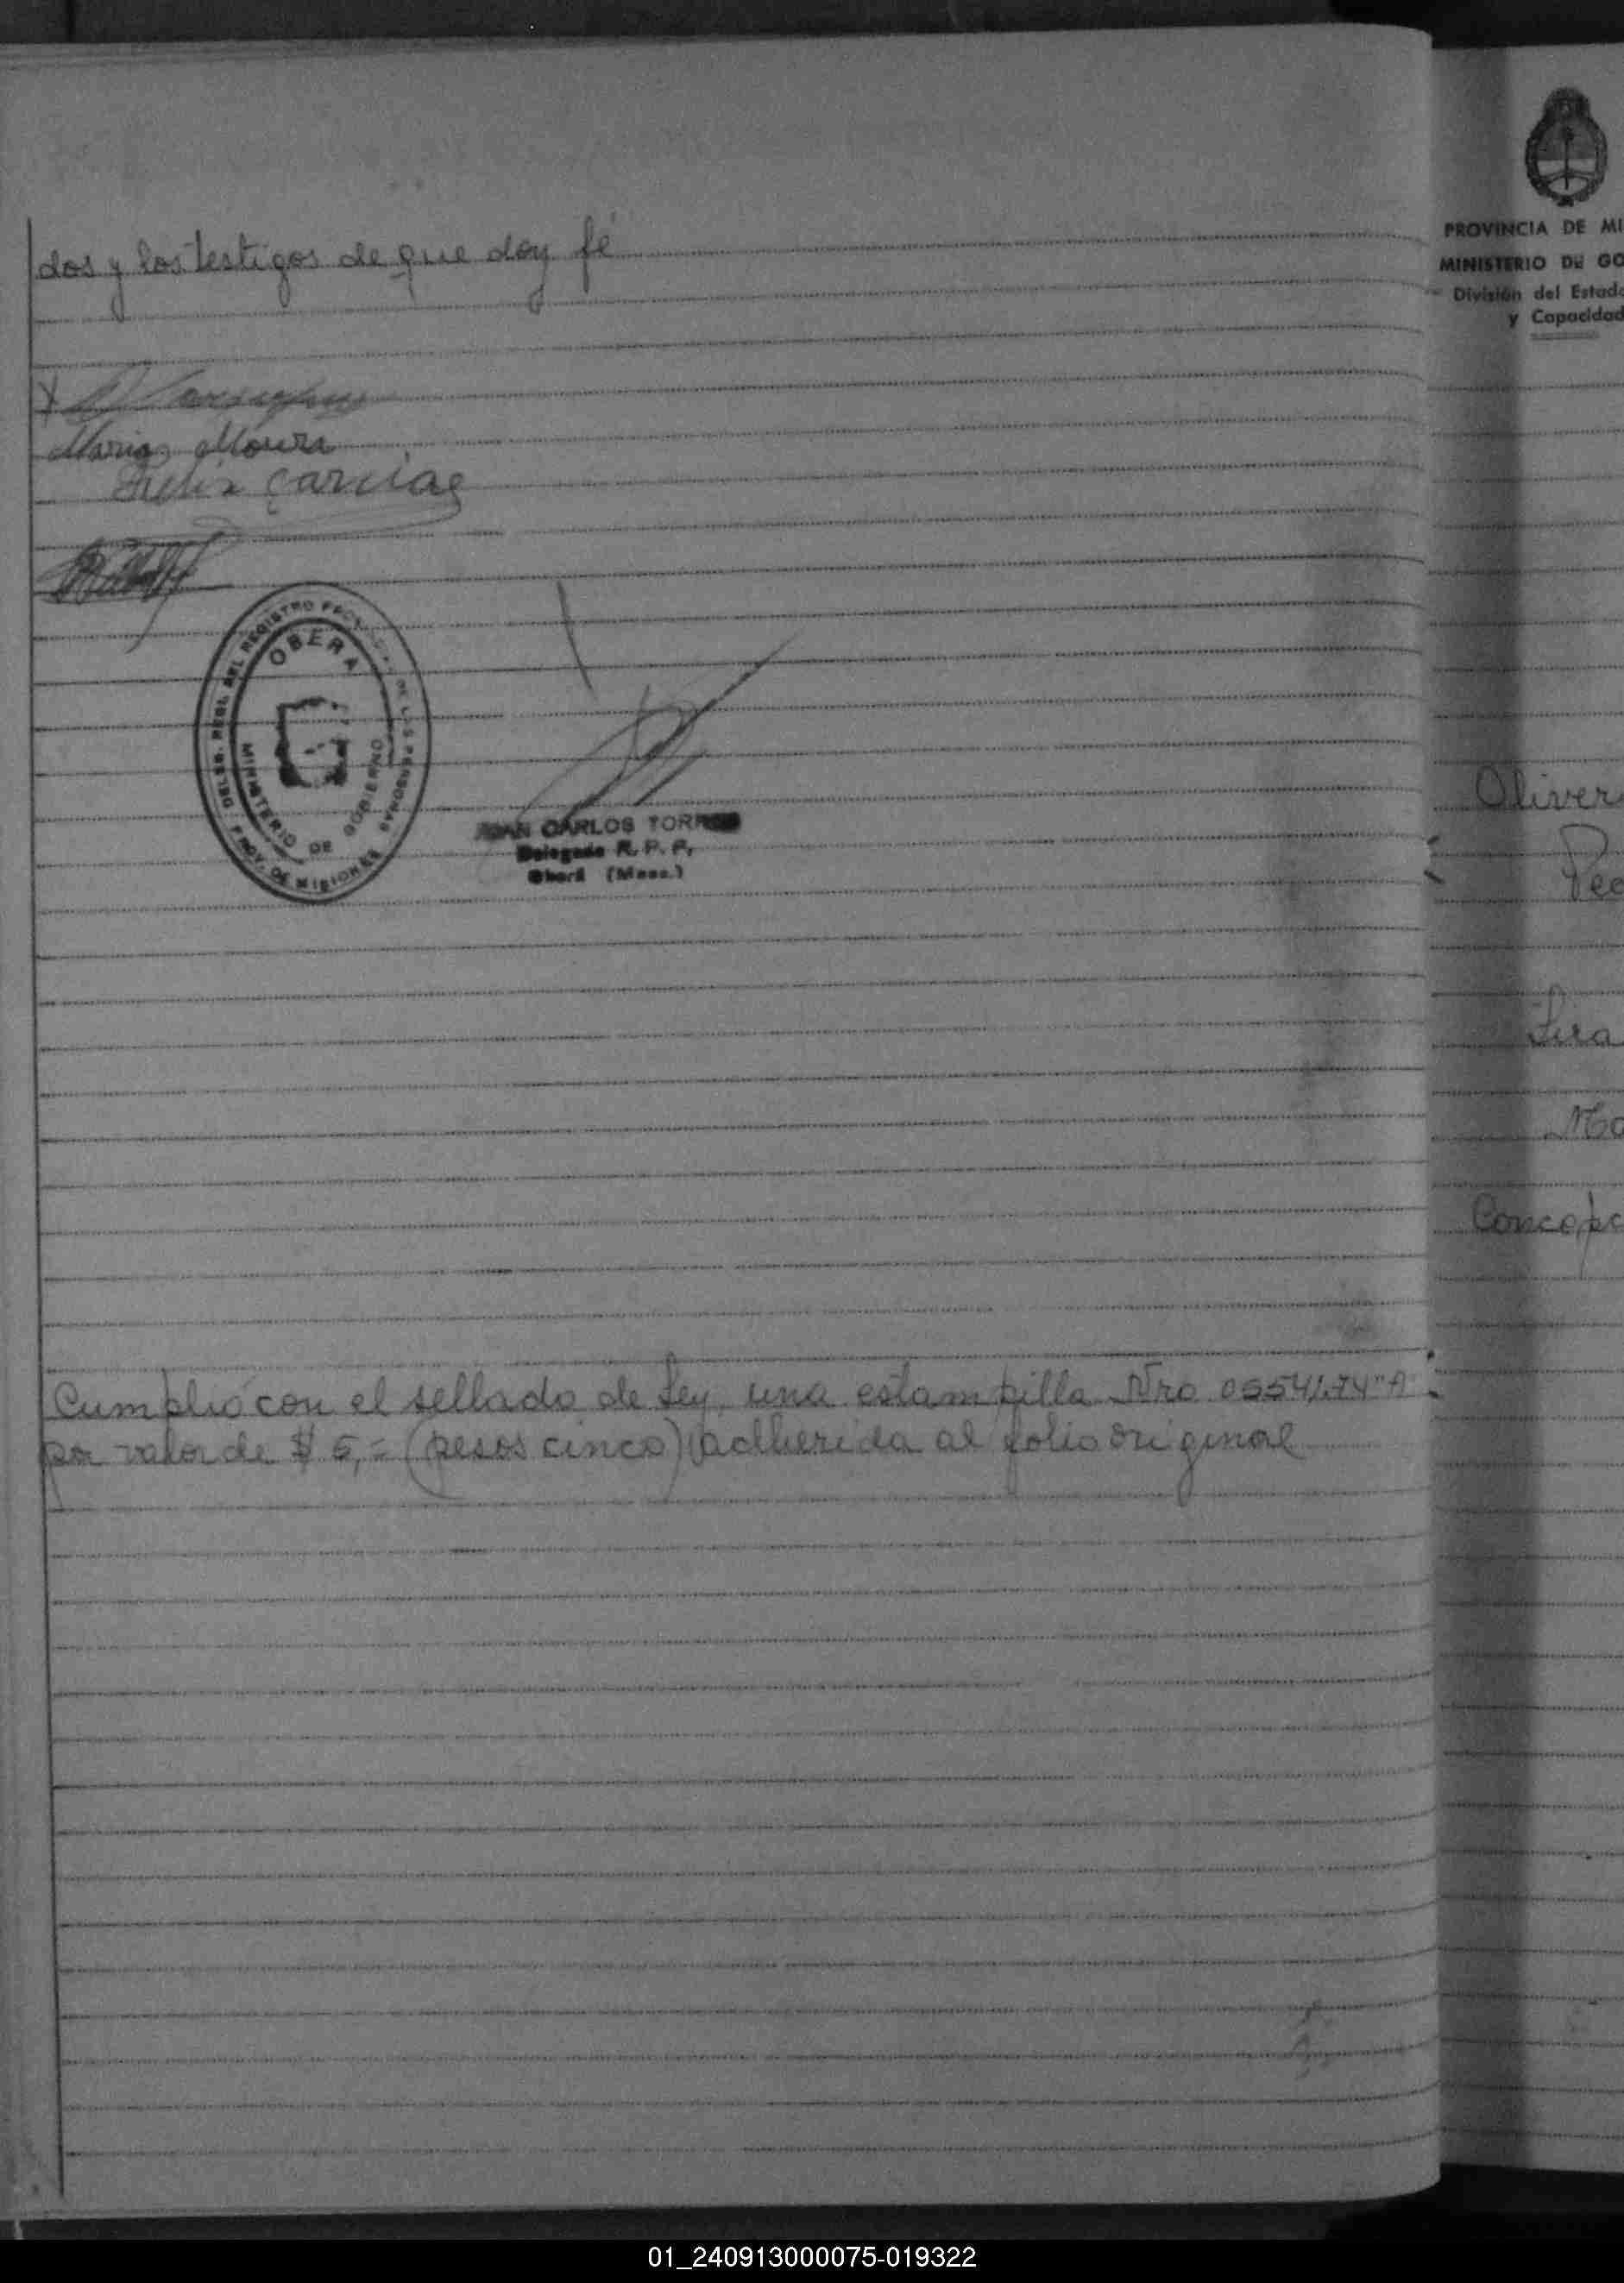 dos y los testigos de que doy fé
Maria Moura
Felix Garciae
DELEG. REGL. DEL REGISTRO PROVINCIAL DE LAS PERSONAS
OBERA
MINISTERIO DE GOBIERNO
PROV. DE MISIONES
JUAN CARLOS TORRES
Delegado R. P. P.
Oberá (Mnes.)
Cumplió con el sellado de Ley, una estampilla Nro "A"
por valor de $ 5,= (pesos cinco) adherida al folio original
PROVINCIA DE MI
MINISTERIO DE GO
División del Estado
y Capacidad
Oliver
Ped
Lira
Ma
Concepc
01_240913000075-019322